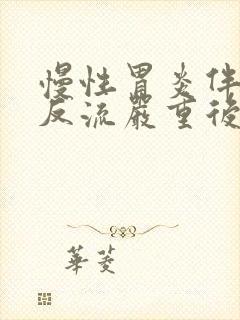 慢性胃炎伴
反流严重後
華菱